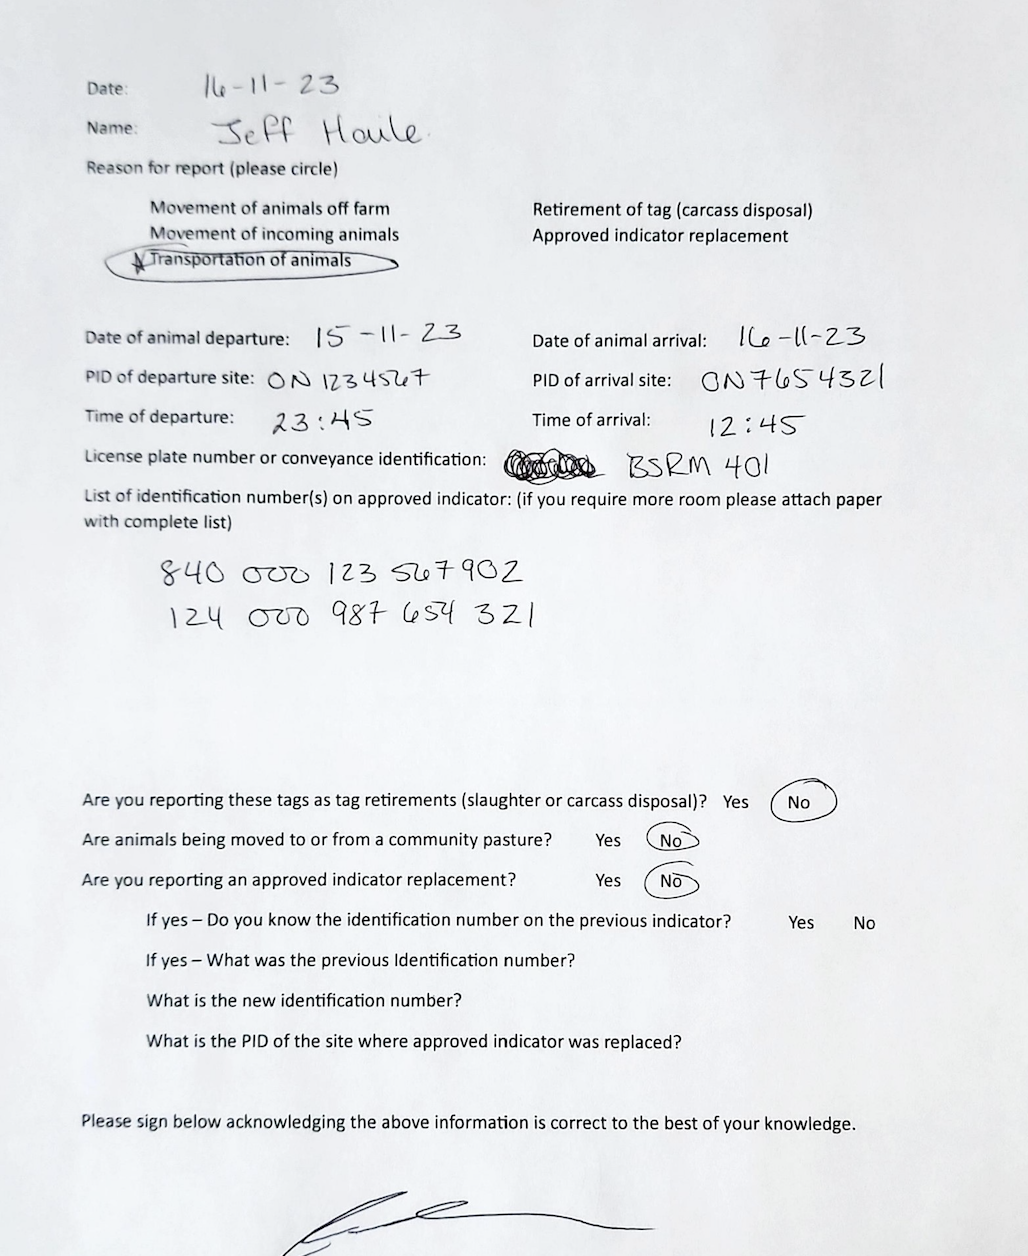 Date: 16-11-23
Name: Jeff Houle
Reason for report (please circle)
Movement of animals off farm Retirement of tag (carcass disposal)
Movement of incoming animals Approved indicator replacement
Transportation of animals
Date of animal departure: 15-11-23 Date of animal arrival: 16-11-23
PID of departure site: ON 1234567 PID of arrival site: ON7654321
Time of departure: 23:45 Time of arrival: 12:45
License plate number or conveyance identification: BSRM 401
List of identification number(s) on approved indicator: (if you require more room please attach paper
with complete list)
840 000 123 567902
124 000 987 654 321
Are you reporting these tags as tag retirements (slaughter or carcass disposal)? Yes No
Are animals being moved to or from a community pasture? Yes No
Are you reporting an approved indicator replacement? Yes No
If yes – Do you know the identification number on the previous indicator? Yes No
If yes – What was the previous Identification number?
What is the new identification number?
What is the PID of the site where approved indicator was replaced?
Please sign below acknowledging the above information is correct to the best of your knowledge.